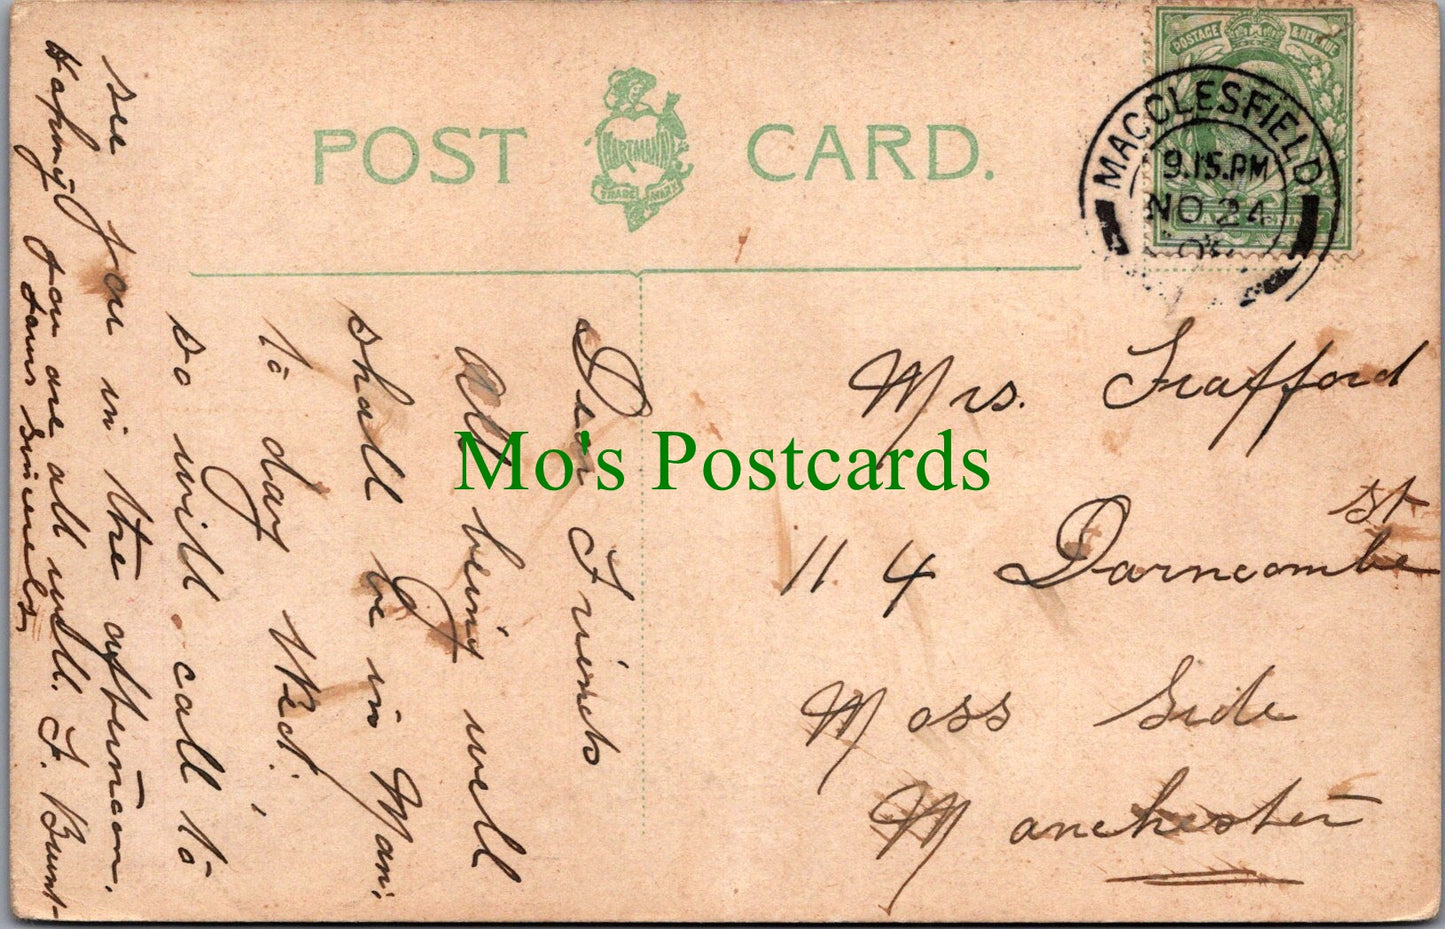 POST CARD.
HARTMANN
TRADE MARK
POSTAGE & REVENUE
HALFPENNY
MACCLESFIELD
9.15.PM
NO 24
Mo's Postcards
Mrs. Trafford
114 Darncombe St
Moss Side
Manchester
Dear Friends
All being well
shall be in Man:
to day Wed:
so will call to
see you in the afternoon.
Hoping you are all well. F. Brunt-
Yours Sincerely